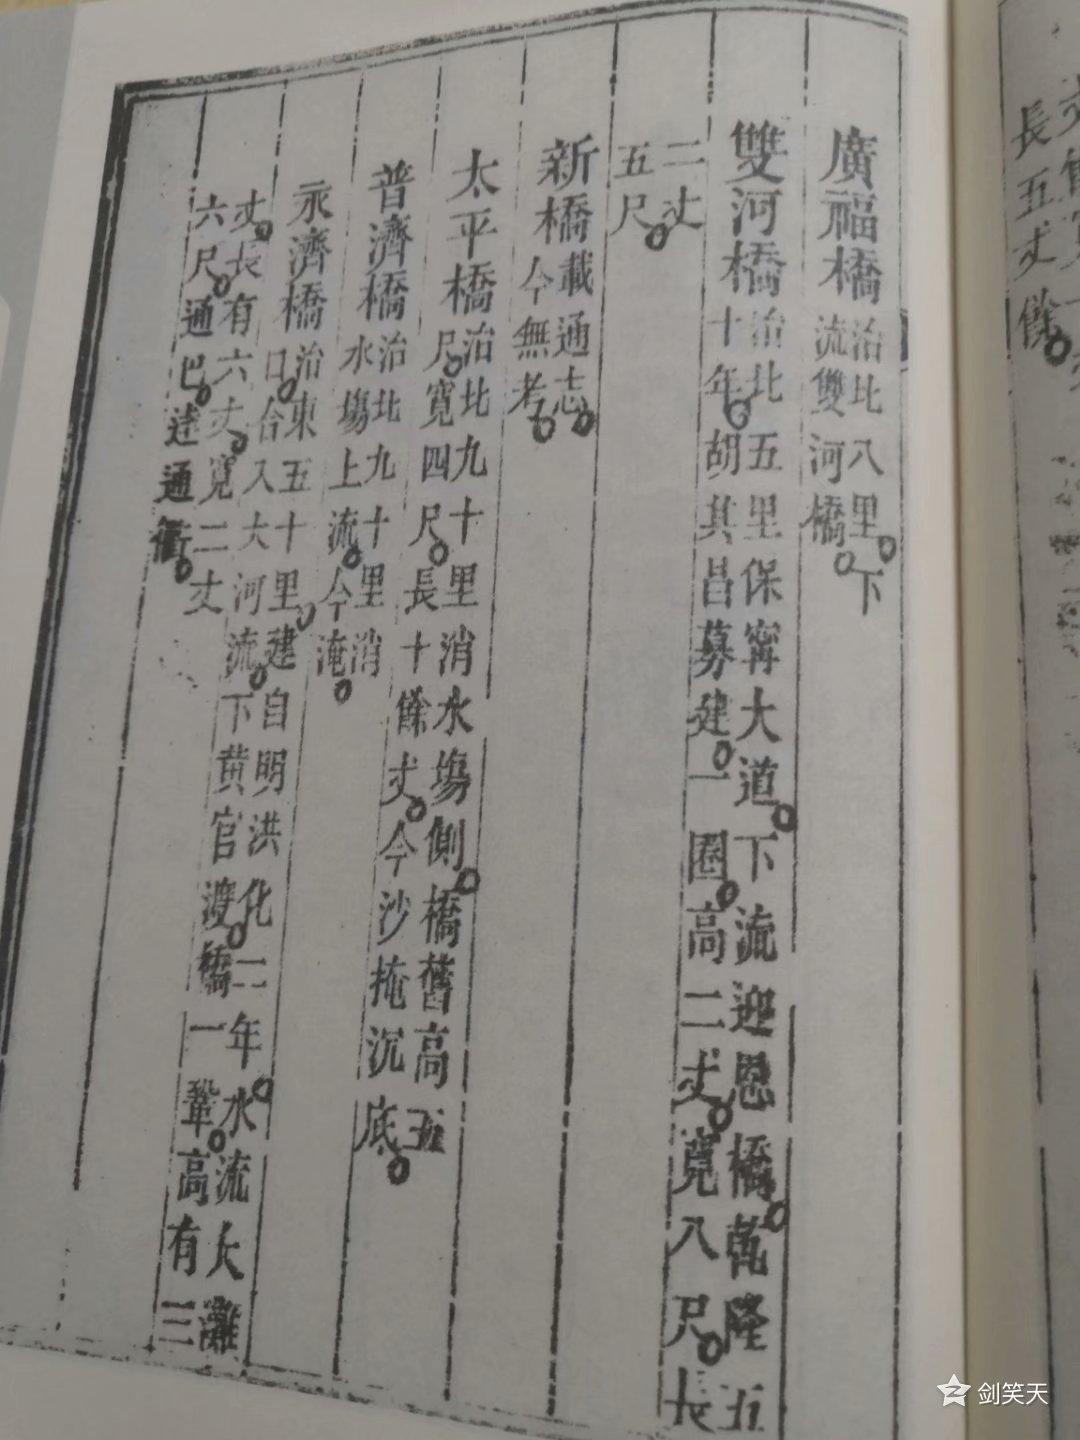 長五丈餘。
廣福橋治北八里。下
流雙河橋。
雙河橋治北五里保甯大道。下流迎恩橋。乾隆五
十年。胡其昌募建。一圈。高二丈。寬八尺。長
二丈
五尺。
新橋載通志。
今無考。
太平橋治北九十里消水塲側。橋舊高五
尺。寬四尺。長十餘丈。今沙掩沉底。
普濟橋治北九十里消
水塲上流。今淹。
永濟橋治東五十里。建自明洪化二年。水流大灘
口。合入大河流。下黄官渡。橋一鞏。高有三
丈。長有六丈。寬二丈
六尺。通巴。達通衢。
剑笑天